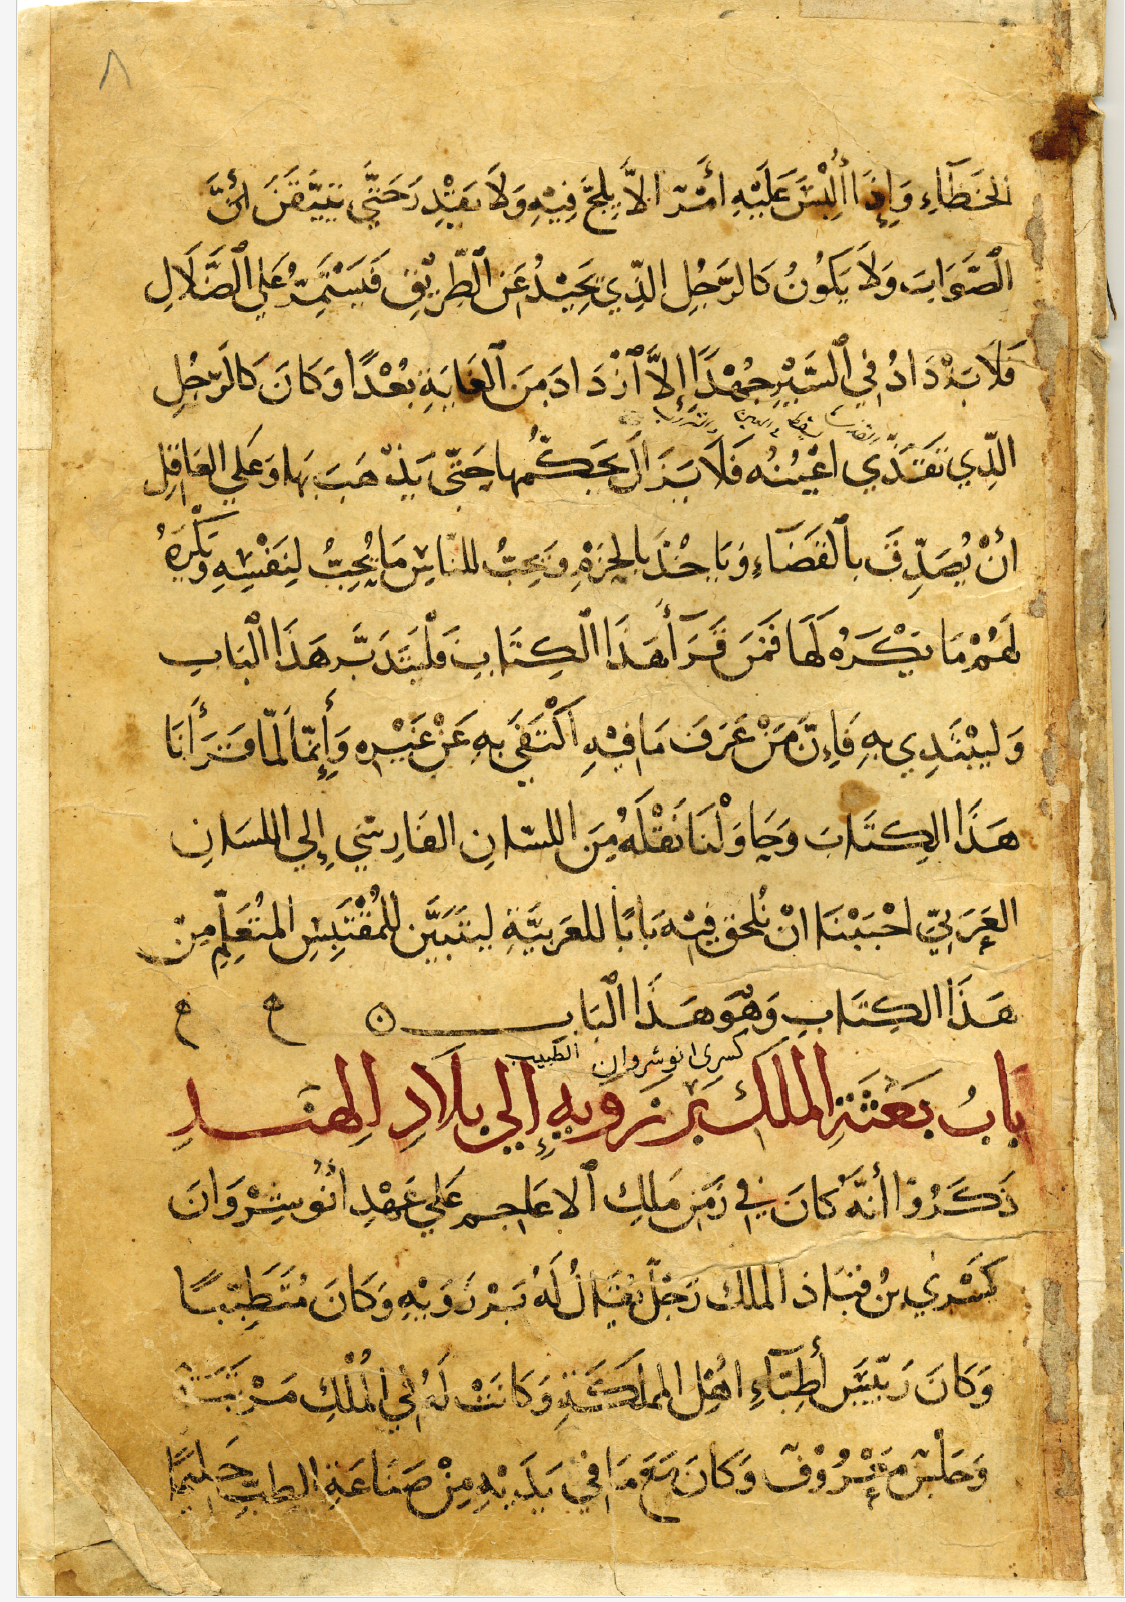 ٨
الخَطَاءِ وَإِذَا أُلبْسَ عَلَيْهِ أمْرٌ الاَّ يِلجَّ فِيْهِ وَلاَ يَقْدِرَ حَتَّي يَتَيَّقَنَ انَّ
الْصَّوَابَ وَلاَ يَكوُنُ كَالرَّجُلِ الَّذِي يَحِيْدُ عَنِ الطَّرِيْقِ فَيَسْتَمِرُّ عَلي الْضَّلَالِ
فَلَا يَزْدَادُ فِي السَّيْرِ جُهْدًا إِلاَّ ازْدَادَ مِنَ الْغَايَةِ بُعْدًا وَكَانَ كَالرَّجُلِ
الَّذِي تَقَذَّي اعْيُنُه فَلَا يَزَالَ يَحَكُّمها حَتّى يَذْهَبَ بَها وَعَلي العَاقِلِ
انْ يُصَدِّقَ بِالْقَضَاءِ وَيَاخُذَ بِالحَزْمِ وَيحِبَّ للنَّاسِ مَا يُحِبُّ لِنَفْسِهِ وَيَكْرَهُ
لَهُمْ مَا يَكْرَهُ لَهَا فَمَنْ قَرَأَ هَذَا الكِتَابَ فَلْيَتَدَبَّر هَذَا الْبَاب
وَليبْتَدِي بِهِ فَاِنَّ مَنْ عَرَفَ مَا فِيْهِ اكْتَفَي بِهِ عَنْ غَيْرِه وَإِنمَّا لَمّا قَرَأنَا
هَذَا الكِتَابَ وَحَاوَلْنَا نَقْلَهُ مِنَ اللسَّانِ الفَارِسّي إِلي اللسَانِ
العَرَبيّ احْبَبْنَا انْ نُلحقَ فِيْه بَابًا للعَربيَّةِ ليتَبَيَّن للمُقْتَبِسِ المتُعَلِّمِ مِنْ
هَذَا الكِتَابِ وَهُوَ هَذَا الْبَاب ه ح ح
كسرى انوشروان الطبيب
بَابُ بَعَثَةِ الملَكِ بَرزَوَيهِ إِلي بِلَادِ الهِنْد
ذَكَرُوْا أَنَّهُ كَانَ فِي زَمَنِ مَلِكِ الاعَاجِم عَلي عَهْدِ انُوشِرْوَانَ
كَسْرَي بنُ قبَاذ الملك رَجُلٌ يُقَالُ لَهُ بَرْزَوَيْهِ وَكَانَ مُتَطَبِّبًا
وَكَانَ رَئيسَ أَطِبَّاءِ اهْلِ الممَلَكَةِ وَكَانَتْ لَهُ فِي الْمُلْكِ مَرْتَبَة
وَحَلْسٌ مَعْرُوْفٌ وَكَانَ مَعَ مَا فِي يَدَيْهِ مِنْ صَنَاعَةِ الطبِّ حَلِيمًا